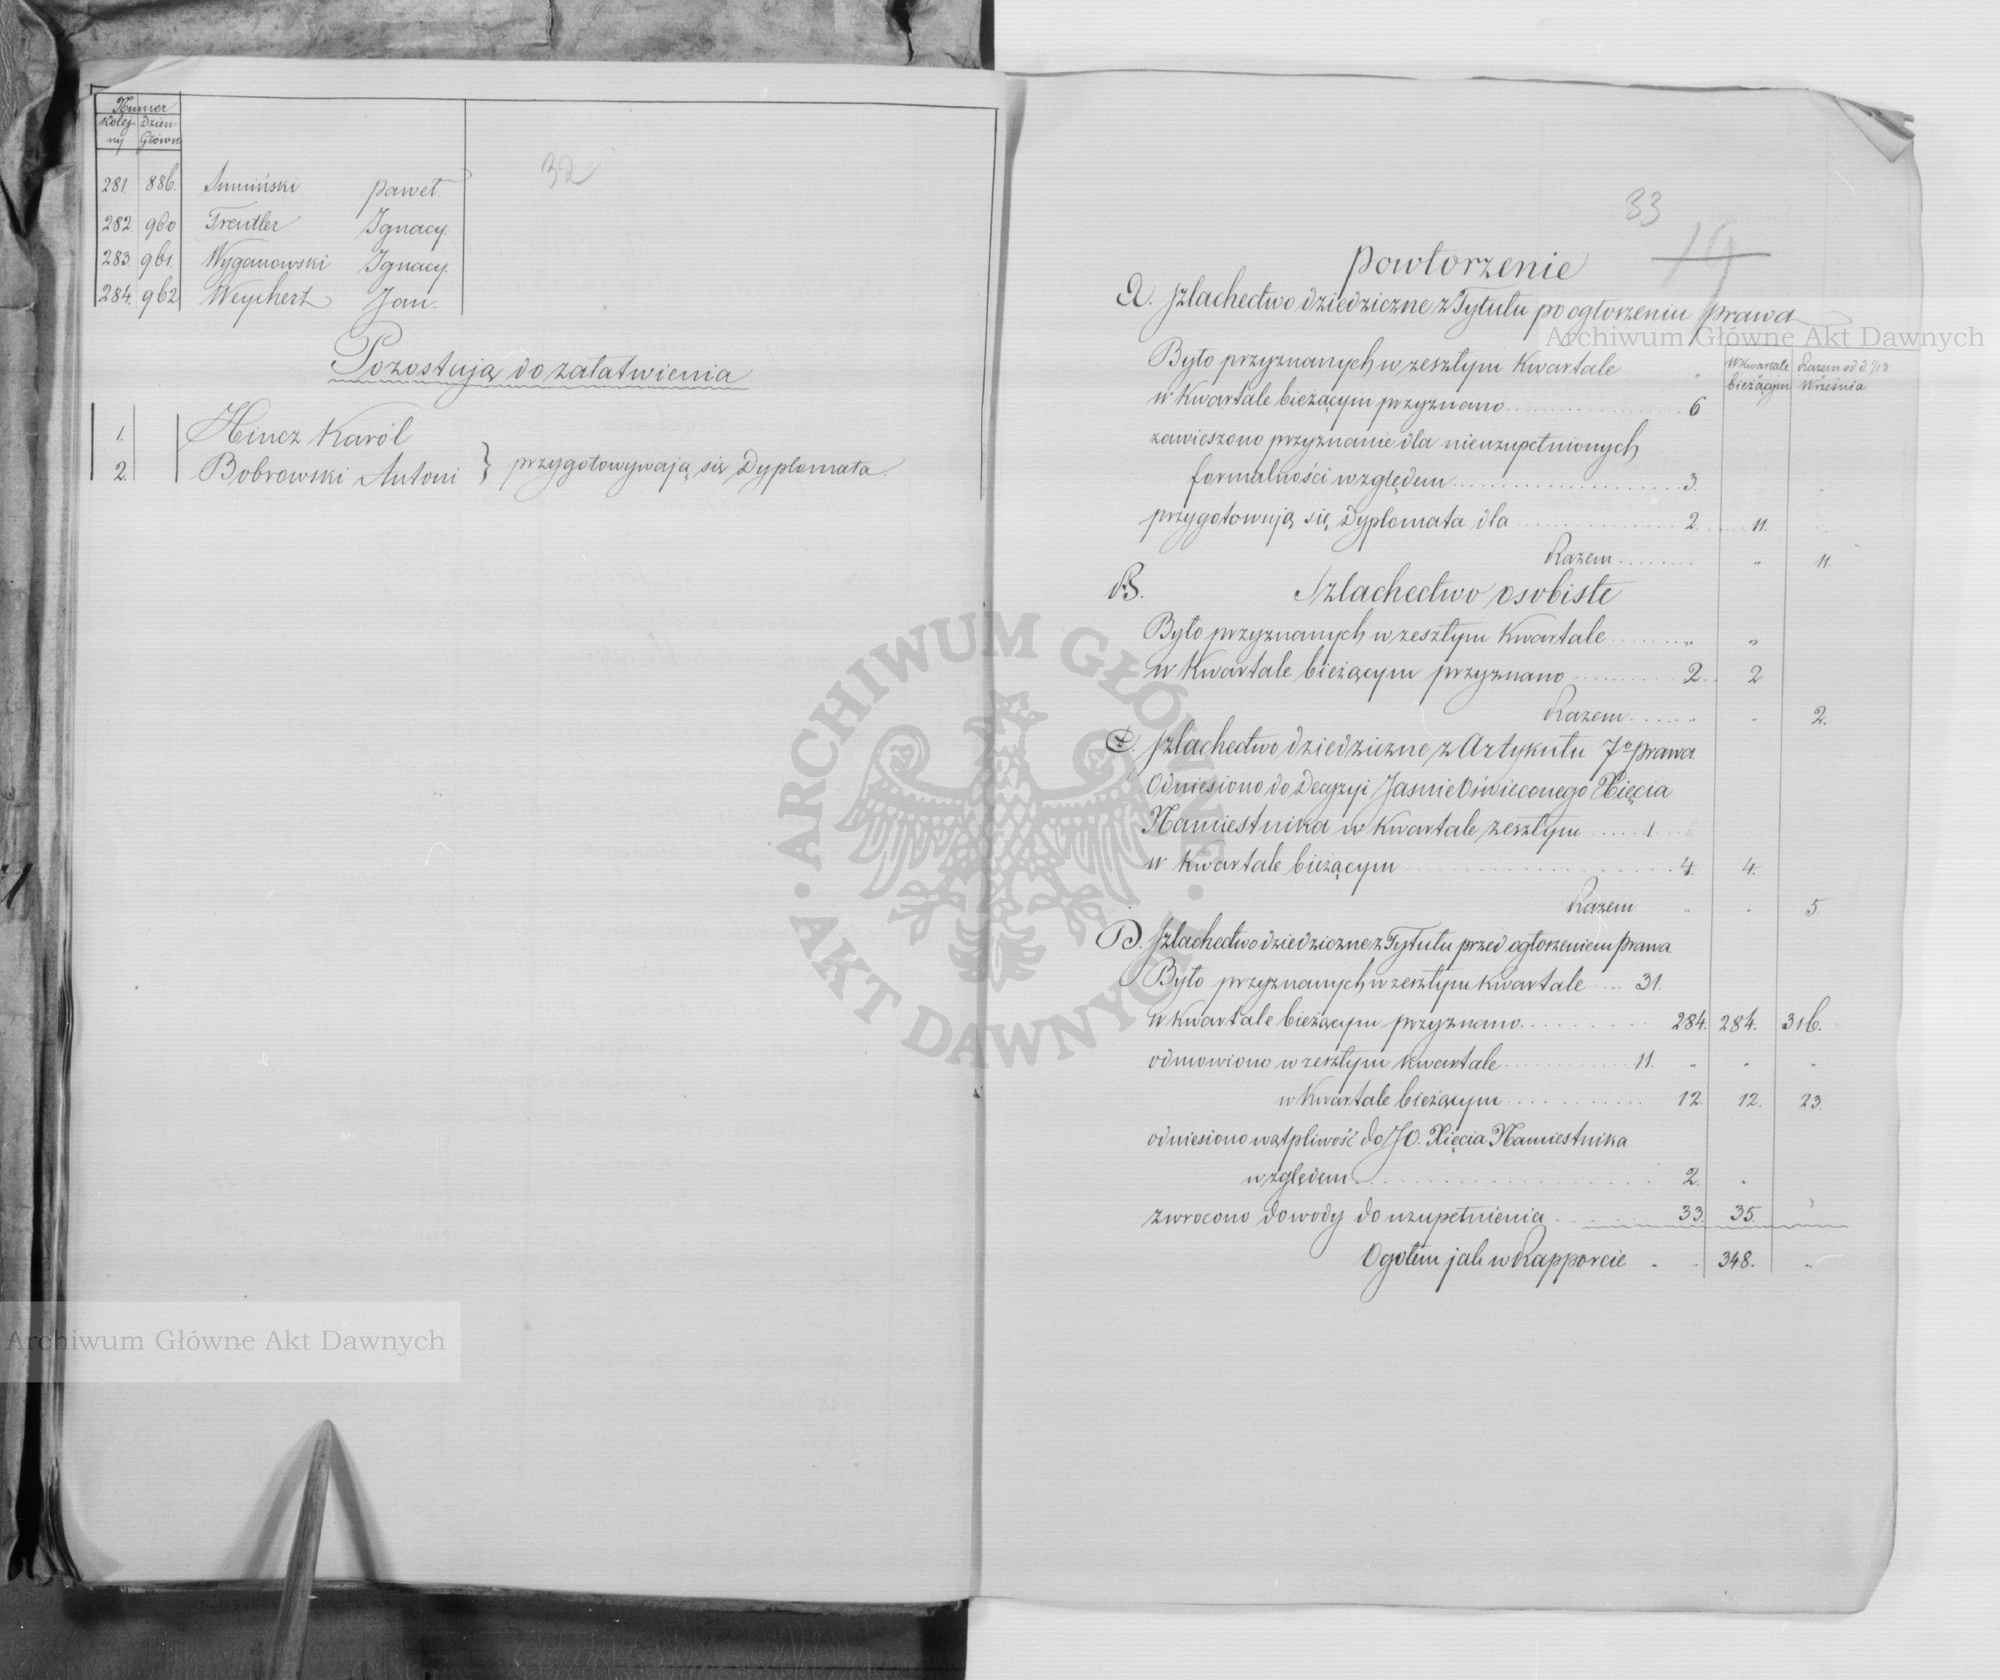 Numer
Kolej- Dzien
ny Główn
32
281. 886. Sumiński Paweł.
282. 960 Treutler Ignacy.
283. 961. Wyganowski Ignacy.
284. 962 Weychert Jan.
Pozostują do załatwienia
1. Hincz Karól
2. Bobrowski Antoni } przygotowywają się Dyplomata
33
19
Powtorzenie
A. Szlachectwo dziedziczne z Tytułu po ogłoszeniu Prawa
W Kwartale bieżącym
Razem od d. 7/13 Września
Było przyznanych w zeszłym Kwartale „
w Kwartale bieżącym przyznano 6
zawieszono przyznanie dla nieuzupełnionych
formalności względem 3.
przygotowują się Dyplomata dla 2. 11.
Razem „ 11.
B. Szlachectwo osobiste
Było przyznanych w zeszłym Kwartale „ „
w Kwartale bieżącym przyznano 2. 2
Razem „ „ 2.
C. Szlachectwo dziedziczne z Artykułu 7o Prawa
Odniesiono do Decyzyi Jasnie Oświeconego Xięcia
Namiestnika w Kwartale zeszłym 1
w Kwartale bieżącym 4. 4.
Razem „ . 5
D. Szlachectwo dziedziczne z Tytułu przed ogłoszeniem Prawa
Było przyznanych w zeszłym Kwartale 31.
w Kwartale bieżącym przyznano 284. 284. 316.
odmowiono w zeszłym Kwartale 11. „ „ „
w Kwartale bieżącym 12. 12. 23.
odniesiono wątpliwość do JO. Xięcia Namiestnika
względem 2. „
zwrocono dowody do uzupełnienia 33. 35.
Ogołem jak w Rapporcie „ „ 348. „
Archiwum Główne Akt Dawnych
Archiwum Główne Akt Dawnych
ARCHIWUM GŁÓWNE · AKT DAWNYCH ·